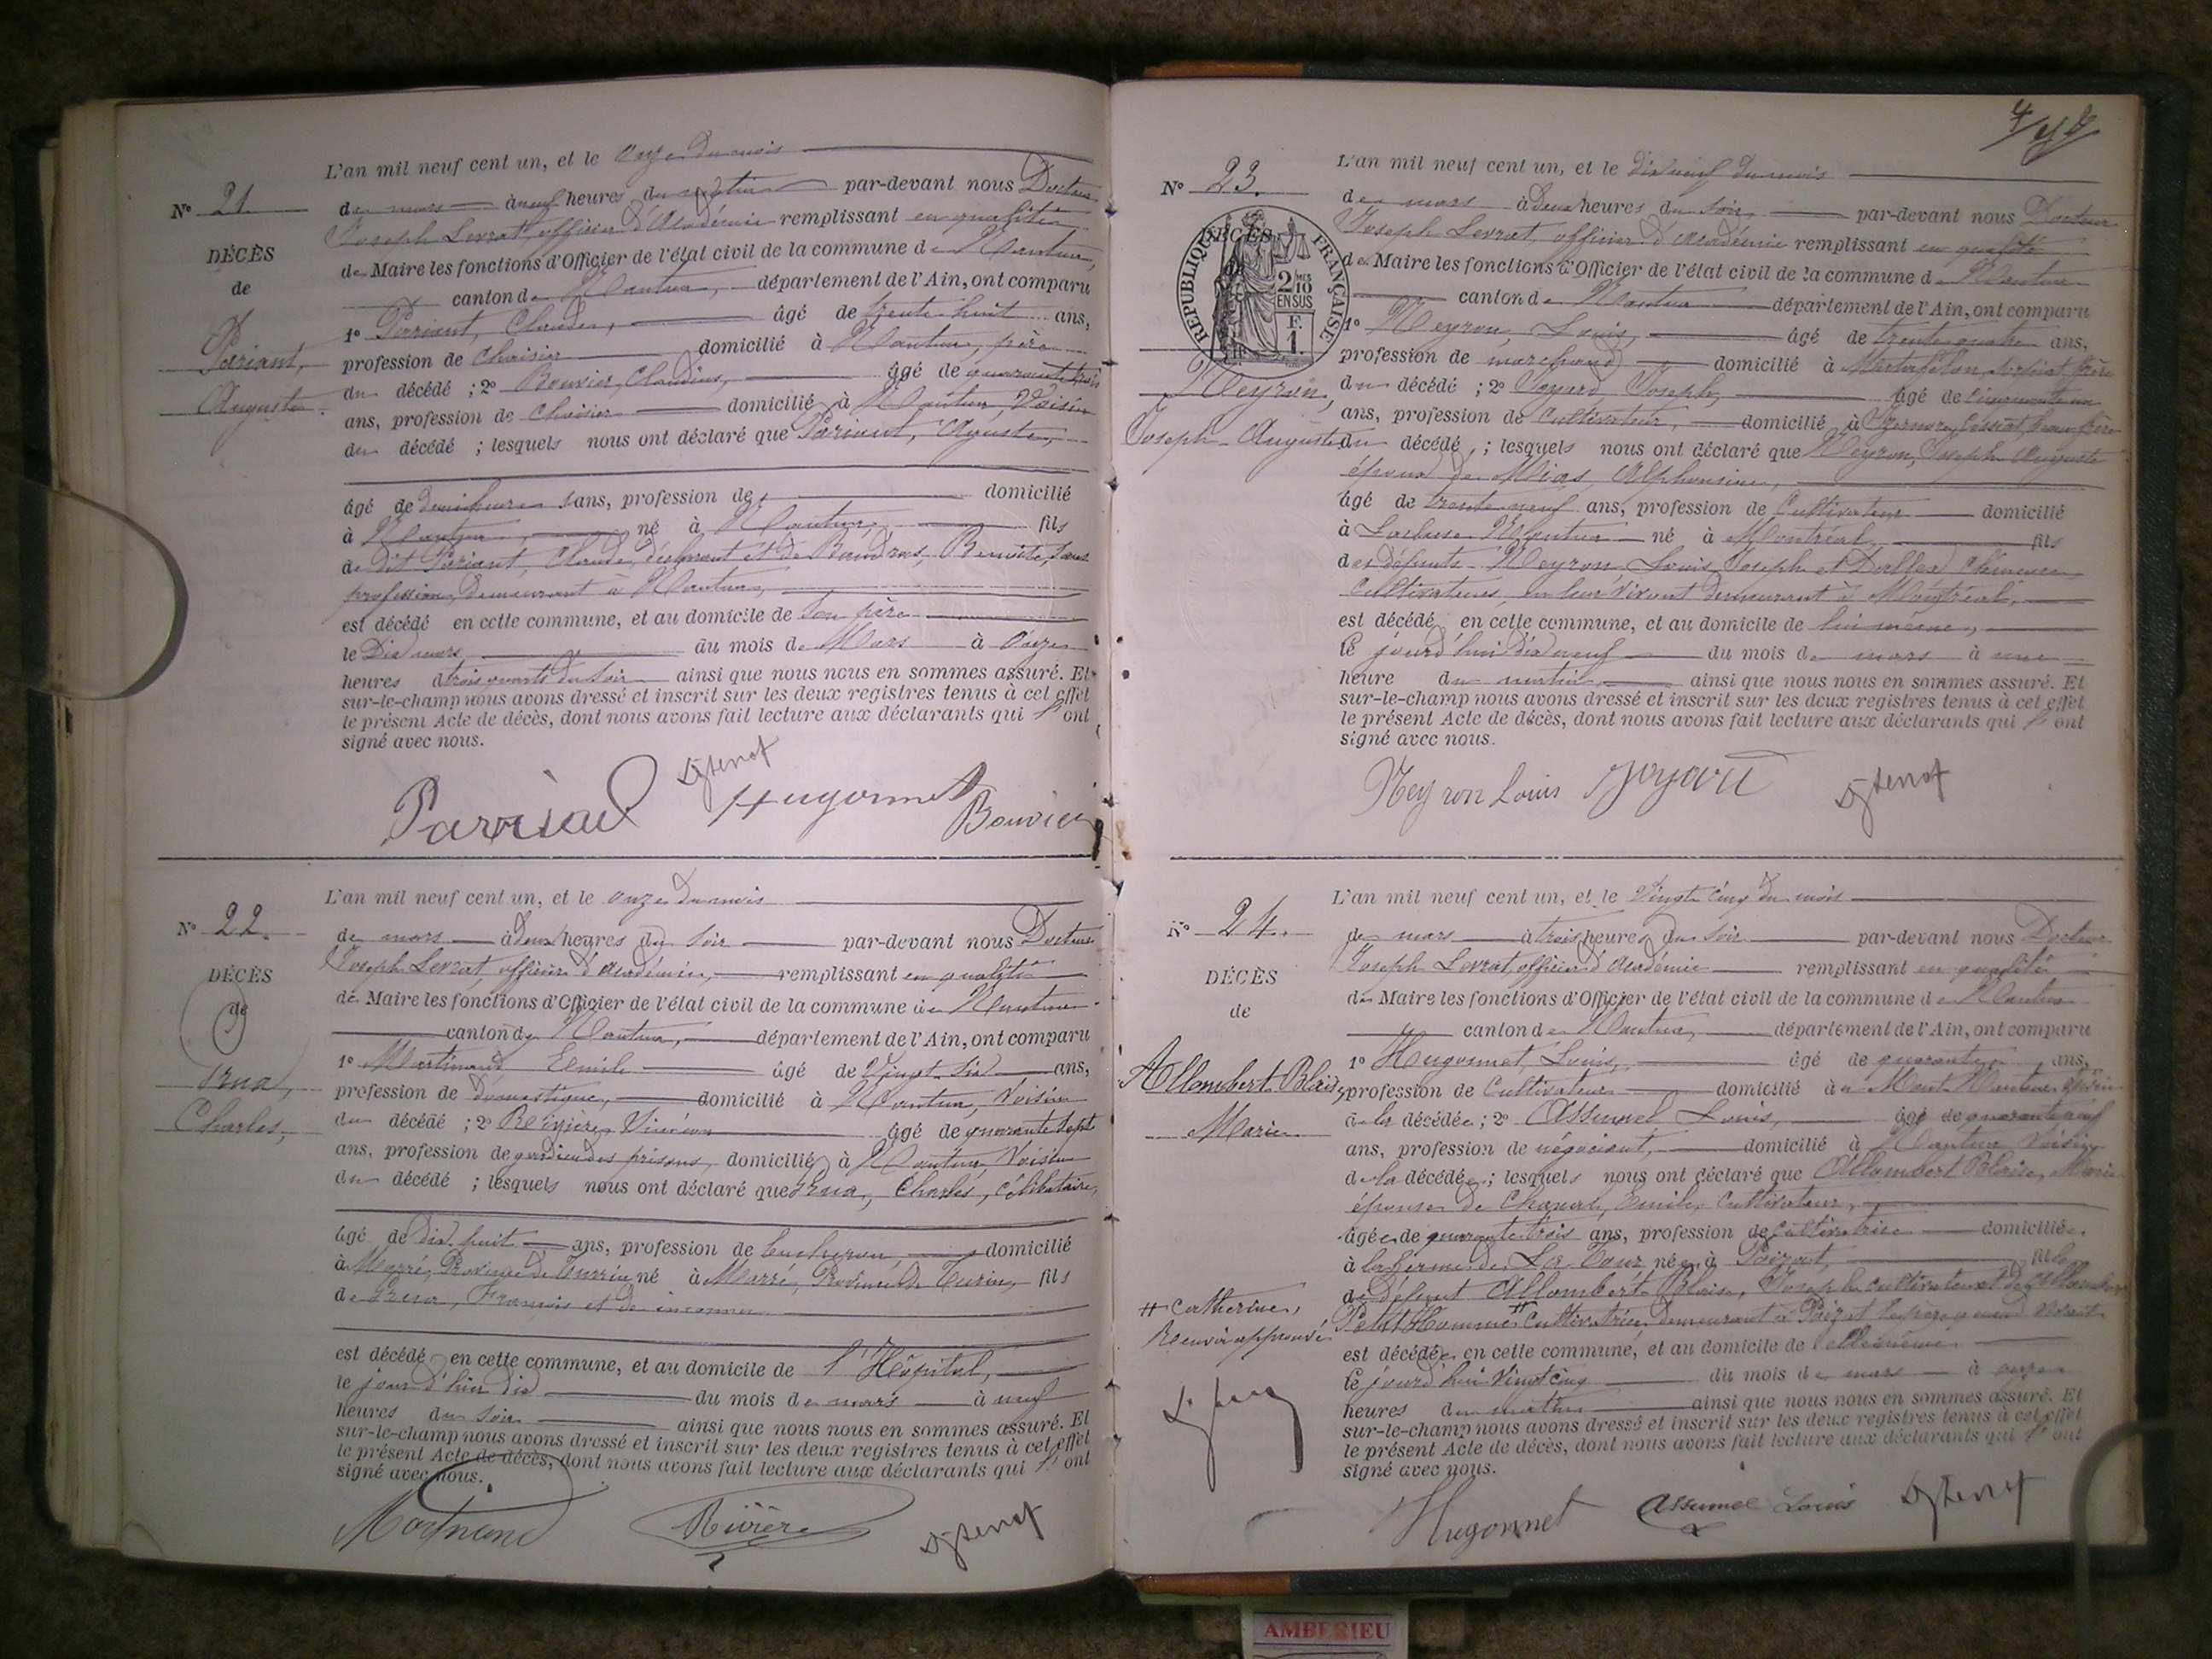 L'an mil neuf cent un, et le onze du mois
N° 21.
de mars à neuf heures du matin par-devant nous Docteur
Joseph Levrat, officier d'Académie remplissant en qualité
de Maire les fonctions d'Officier de l'état civil de la commune de Nantua,
canton de Nantua, département de l'Ain, ont comparu
DÉCÈS
de
Pariant,
Auguste
1° Pariant, Claude, âgé de trente huit ans,
profession de Chaisier domicilié à Nantua, père
du décédé ; 2° Bouvier, Claudius, âgé de quarante trois
ans, profession de Chaisier domicilié à Nantua, Voisin
du décédé ; lesquels nous ont déclaré que Pariant, Auguste,
âgé de demi heure sans, profession de domicilié
à Nantua, né à Nantua, fils
de dit Pariant, Claude, déclarant et de Benoite, sans
profession, demeurant à Nantua,
est décédé en cette commune, et au domicile de son père
le Dix mars du mois de Mars à onze
heures trois quarts du soir ainsi que nous nous en sommes assuré. Et
sur-le-champ nous avons dressé et inscrit sur les deux registres tenus à cet effet
le présent Acte de décès, dont nous avons fait lecture aux déclarants qui l'ont
signé avec nous.
Hugonnet
Bouvier
L'an mil neuf cent un, et le onze du mois
N° 22.
de mars à deux heures du soir par-devant nous Docteur
Joseph Levrat, officier d'Académie, remplissant en qualité
de Maire les fonctions d'Officier de l'état civil de la commune de Nantua
canton de Nantua, département de l'Ain, ont comparu
DÉCÈS
de
Charles,
1° Martinand Emile âgé de Vingt-six ans,
profession de domestique, domicilié à Nantua, Voisin
du décédé ; 2° âgé de quarante sept
ans, profession de gardien des prisons, domicilié à Nantua, Voisin
du décédé ; lesquels nous ont déclaré que Charles, célibataire,
âgé de dix-huit ans, profession de bucheron, domicilié
à Province de Turin né à Province de Turin, fils
de François et de
est décédé en cette commune, et au domicile de l'Hôpital,
le jour d'hier dix du mois de mars à neuf
heures du soir ainsi que nous nous en sommes assuré. Et
sur-le-champ nous avons dressé et inscrit sur les deux registres tenus à cet effet
le présent Acte de décès, dont nous avons fait lecture aux déclarants qui l'ont
signé avec nous.
Martinand Rivière
L'an mil neuf cent un, et le dix neuf du mois
N° 23.
de mars à deux heures du soir, par-devant nous Docteur
Joseph Levrat, officier d'Académie remplissant en qualité
de Maire les fonctions d'Officier de l'état civil de la commune de Nantua
canton de Nantua département de l'Ain, ont comparu
DÉCÈS
REPUBLIQUE FRANÇAISE
2 MES
10
EN SUS
F.
1.
Neyron,
Joseph-Auguste
1° Neyron, Louis, âgé de trente quatre ans,
profession de marchand domicilié à frère
du décédé ; 2° Joseph, âgé de cinquante un
ans, profession de Cultivateur, domicilié à beau-frère
du décédé, ; lesquels nous ont déclaré que Neyron, Joseph Auguste
époux de Alphonsine,
âgé de trente neuf ans, profession de Cultivateur domicilié
à Nantua né à Montréal fils
des défunts Neyron Louis Joseph et
Cultivateurs, en leur vivant demeurant à Montréal,
est décédé en cette commune, et au domicile de lui même,
le jourd'hui dix neuf du mois de mars à une
heure du matin, ainsi que nous nous en sommes assuré. Et
sur-le-champ nous avons dressé et inscrit sur les deux registres tenus à cet effet
le présent Acte de décès, dont nous avons fait lecture aux déclarants qui l'ont
signé avec nous.
Neyron Louis
L'an mil neuf cent un, et le Vingt cinq du mois
N° 24.
de mars à trois heures du soir par-devant nous Docteur
Joseph Levrat, officier d'Académie remplissant en qualité
de Maire les fonctions d'Officier de l'état civil de la commune de Nantua
canton de Nantua, département de l'Ain, ont comparu
DÉCÈS
de
Allombert Blaise,
Marie
1° Hugonnet, Louis, âgé de quarante ans,
profession de Cultivateur domicilié à Nantua,
de la décédée ; 2° Assumel Louis, âgé de quarante neuf
ans, profession de négociant, domicilié à Nantua Voisin
de la décédée ; lesquels nous ont déclaré que Allombert Blaise, Marie
épouse de Emile, Cultivateur,
âgée de quarante trois ans, profession de cultivatrice domiciliée,
à la ferme de La née à fille
de défunt Allombert Blaise, Joseph cultivateur et de
Petit Homme # Cultivatrice, demeurant à
# Catherine,
Renvoi approuvé
est décédée en cette commune, et au domicile de elle même
le jourd'hui Vingt cinq du mois de mars à onze
heures du matin ainsi que nous nous en sommes assuré. Et
sur-le-champ nous avons dressé et inscrit sur les deux registres tenus à cet effet
le présent Acte de décès, dont nous avons fait lecture aux déclarants qui l'ont
signé avec nous.
Hugonnet Assumel Louis
AMBERIEU